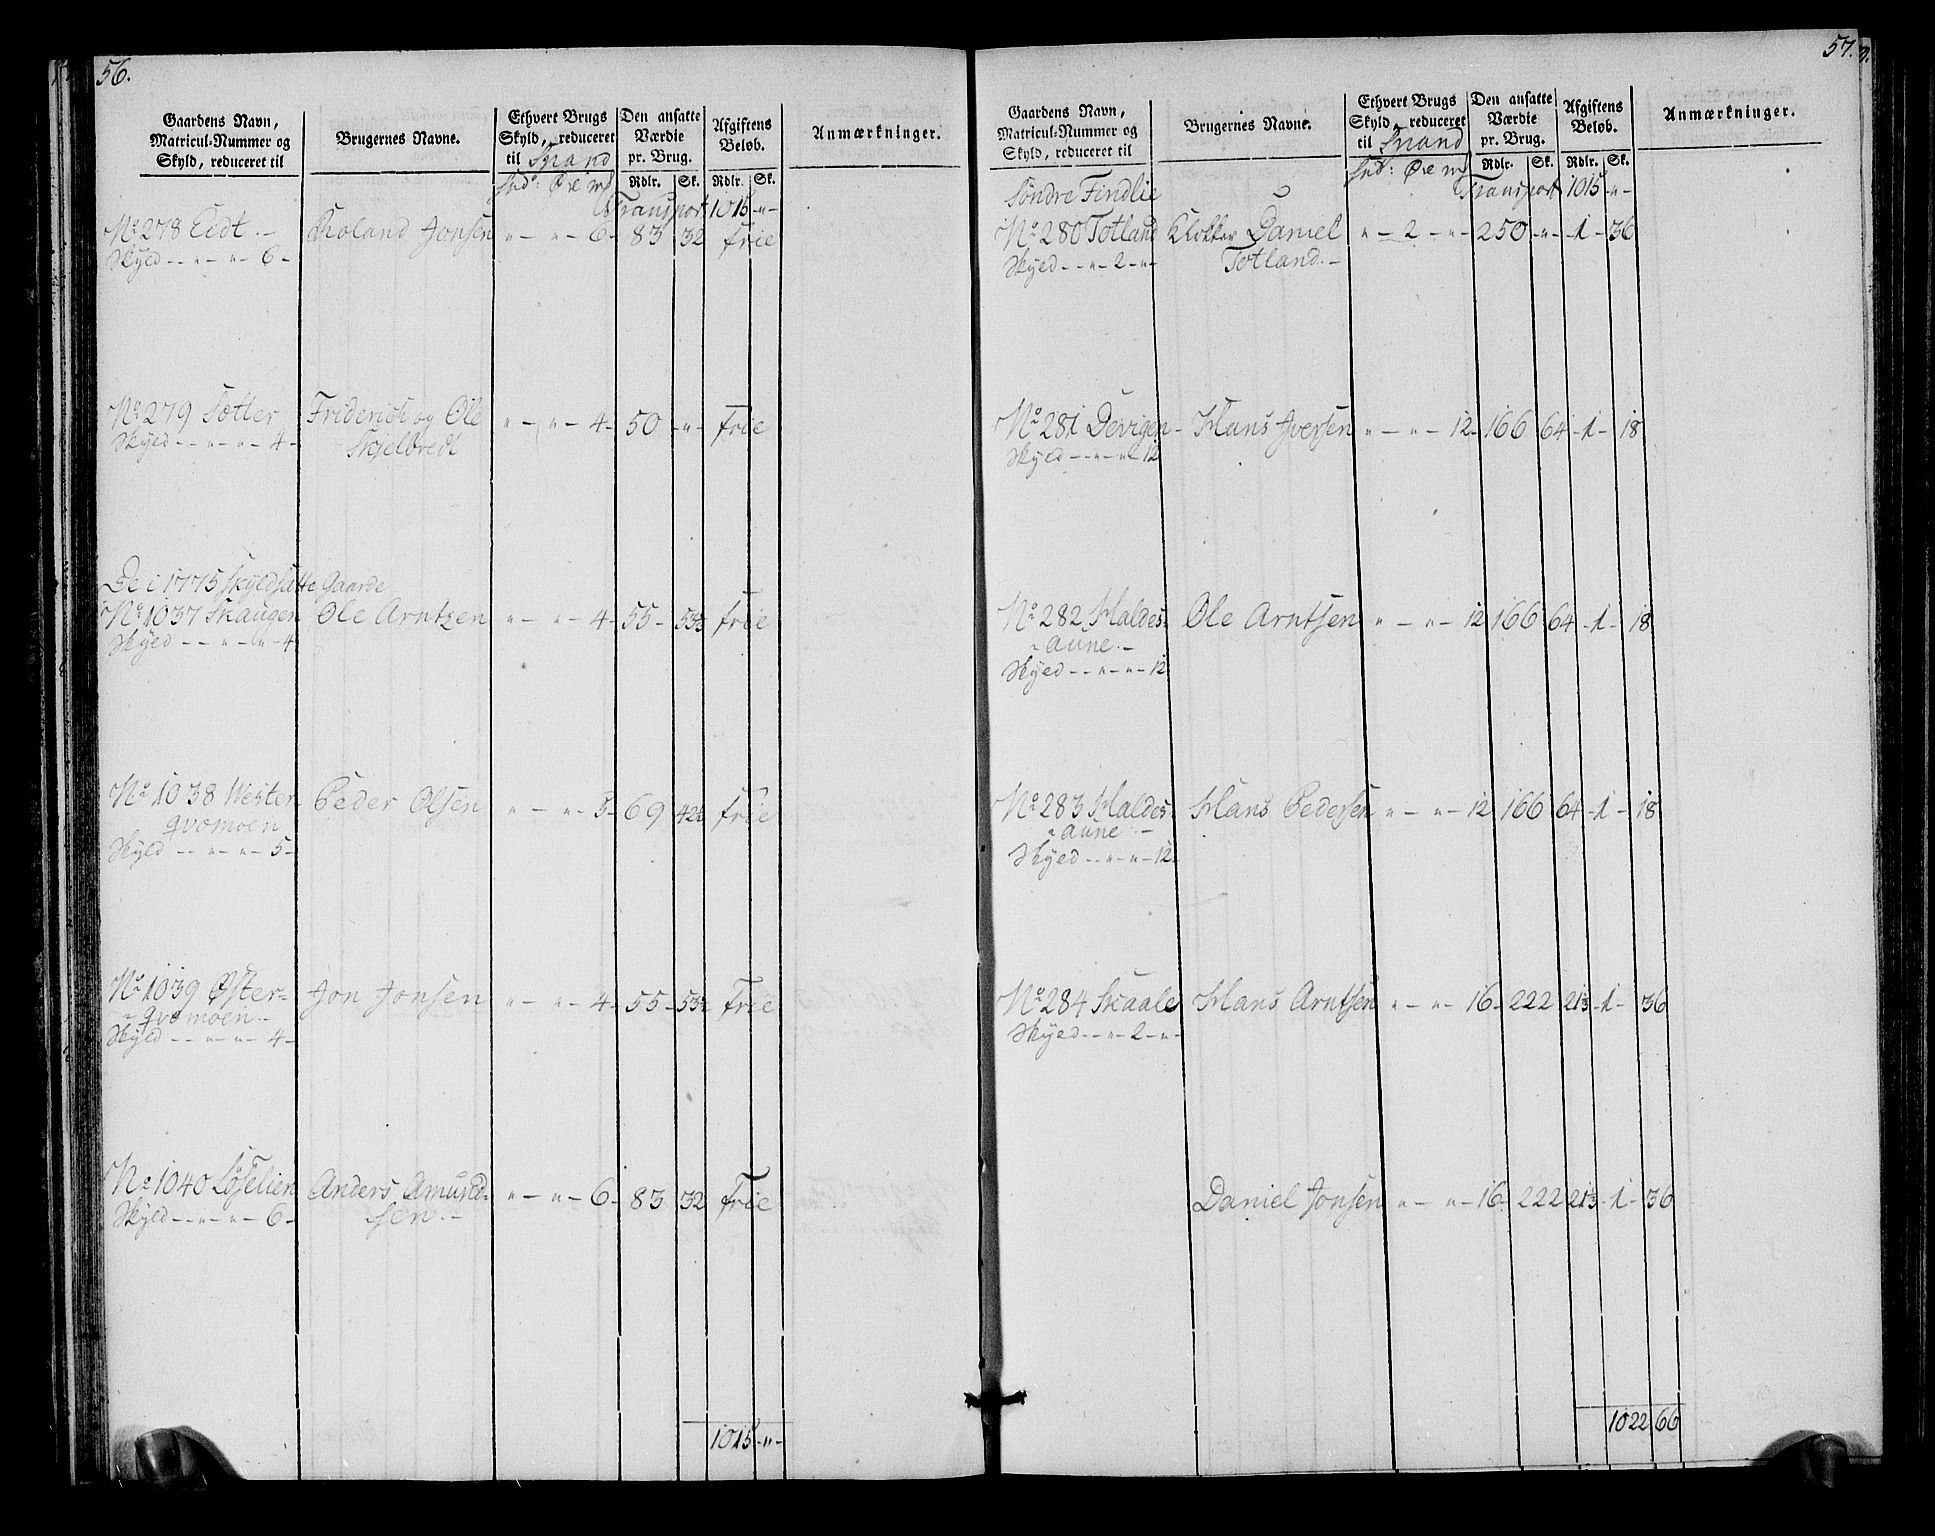 56.
Gaardens Navn,
Matricul-Nummer og
Skyld, reduceret til
Brugernes Navne.
Ethvert Brugs
Skyld, reduceret
til
Spd: Øre mk
Den ansatte
Værdie
pr. Brug.
Rdlr. Sk.
Afgiftens
Beløb.
Rdlr. Sk.
Anmærkninger.
Transport 1015 - " -
No 278 Eidt. - Roland Jonsen " - " - 6 - 83 32 frie
Skyld - - " - " - 6 -
No 279 Sætter Friderich og Ole " - " - 4 - 50 - " - frie
Skyld - - " - " - 4 - Skjelbredt
De i 1775 skyldsatte Gaarde
No 1037 Skaugen Ole Arntzen " - " - 4 - 55 - 53½ frie
Skyld - - " - " - 4
No 1038 Wester- Peder Olsen " - " - 5 - 69 42½ frie
qvomoen
Skyld - - " - " - 5 -
No 1039 Øster- Jon Jonsen " - " - 4 - 55 - 53½ frie
qvomoen -
Skyld - - " - " - 4 -
No 1040 Løselien Anders Amund- " - " - 6 - 83 32 frie
Skyld - - " - " - 6 - sen. -
1015 - " -
57.
Gaardens Navn,
Matricul-Nummer og
Skyld, reduceret til
Brugernes Navne.
Ethvert Brugs
Skyld, reduceret
til
Spd: Øre mk
Den ansatte
Værdie
pr. Brug.
Rdlr. Sk.
Afgiftens
Beløb.
Rdlr. Sk.
Anmærkninger.
Transport 1015 - " -
Søndre Findlie
No 280 Totland Klokker Daniel " - 2 - " - 250 - " - - 1 - 36
Skyld - - " - 2 - " - Totland. -
No 281 Devigen - Hans Iversen " - " - 12 - 166 64 - 1 - 18
Skyld - - " - " - 12
No 282 Haldes- Ole Arntsen " - " - 12 166 64 - 1 - 18
aune. -
Skyld - - " - " - 12
No 283 Haldes- Hans Pedersen " - " - 12 166 64 - 1 - 18
aune -
Skyld - - " - " - 12 -
No 284 Skaale Hans Arntsen " - " - 16 - 222 21⅓ - 1 - 36
Skyld - - " - 2 - " -
Daniel Jonsen " - " - 16 - 222 21⅓ - 1 - 36
1022 66